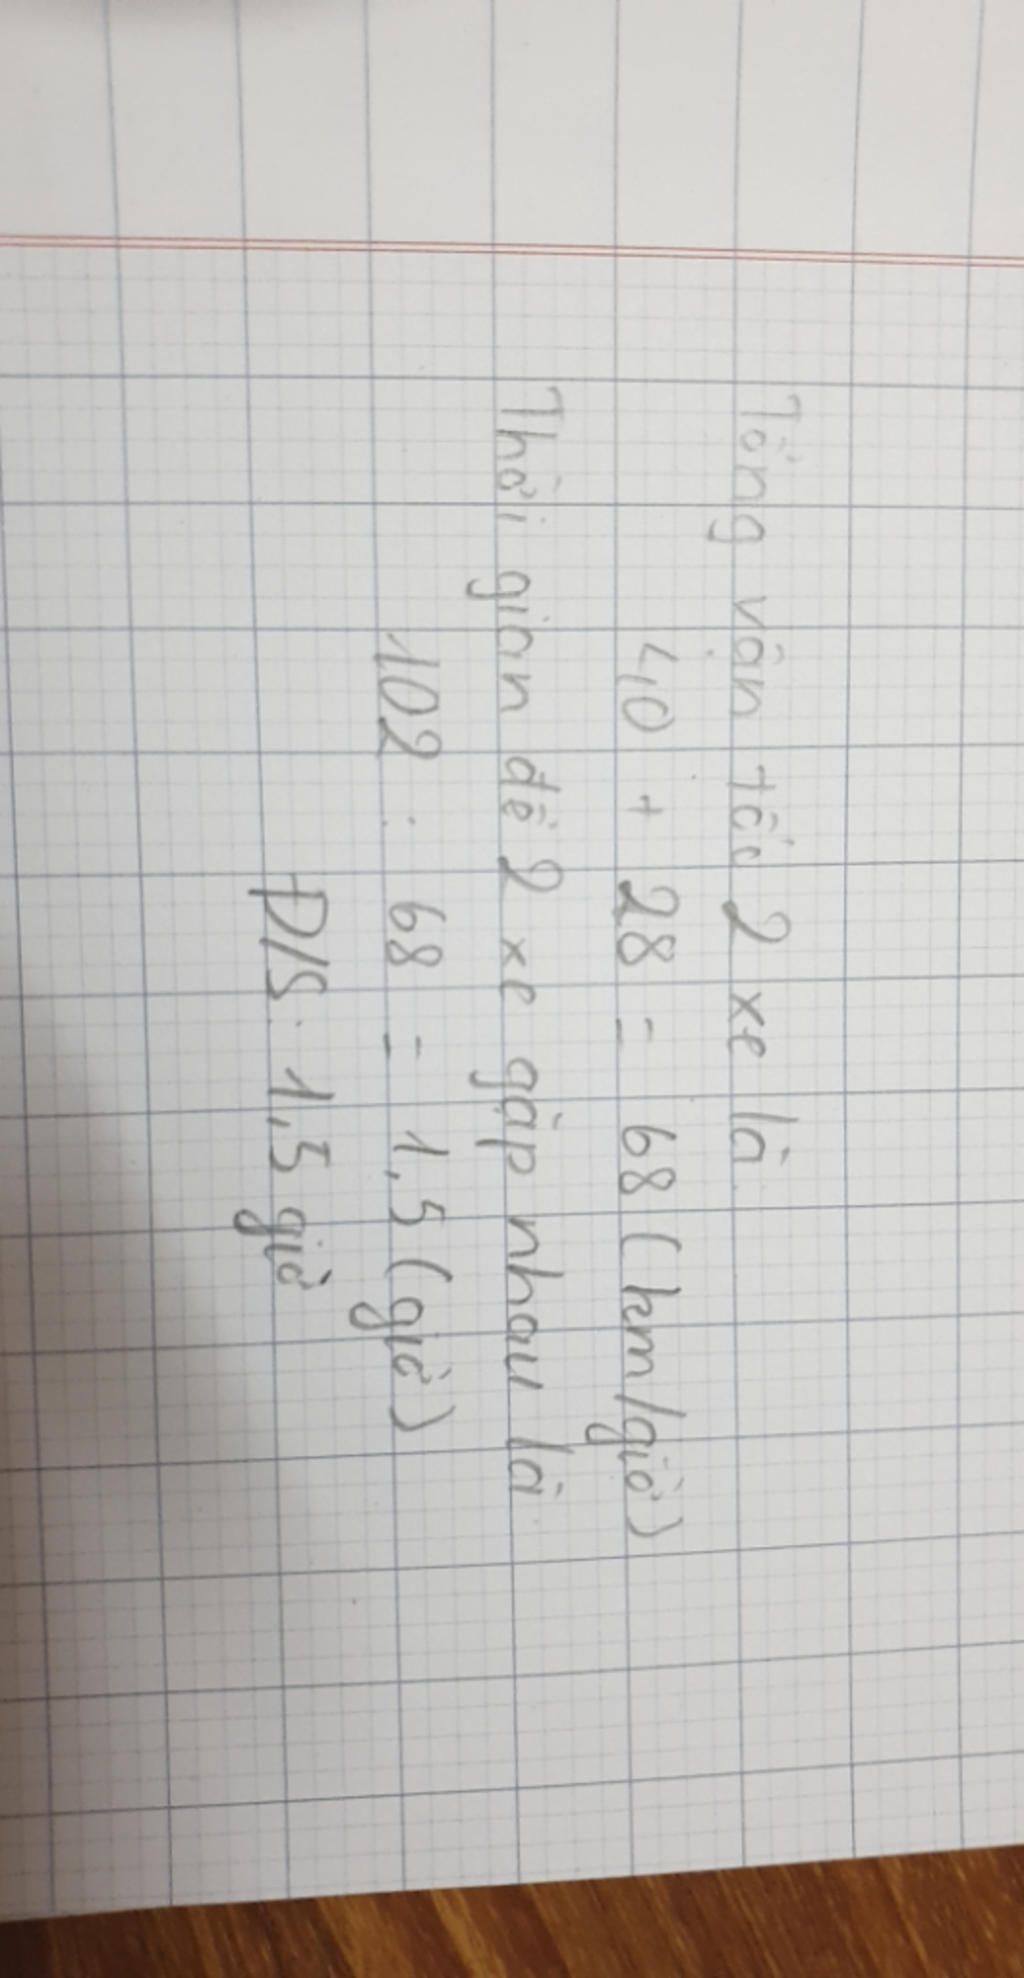 Tổng vận tốc 2 xe là:
40 + 28 = 68 (km/giờ)
Thời gian để 2 xe gặp nhau là:
102 : 68 = 1,5 (giờ)
Đ/S: 1,5 giờ